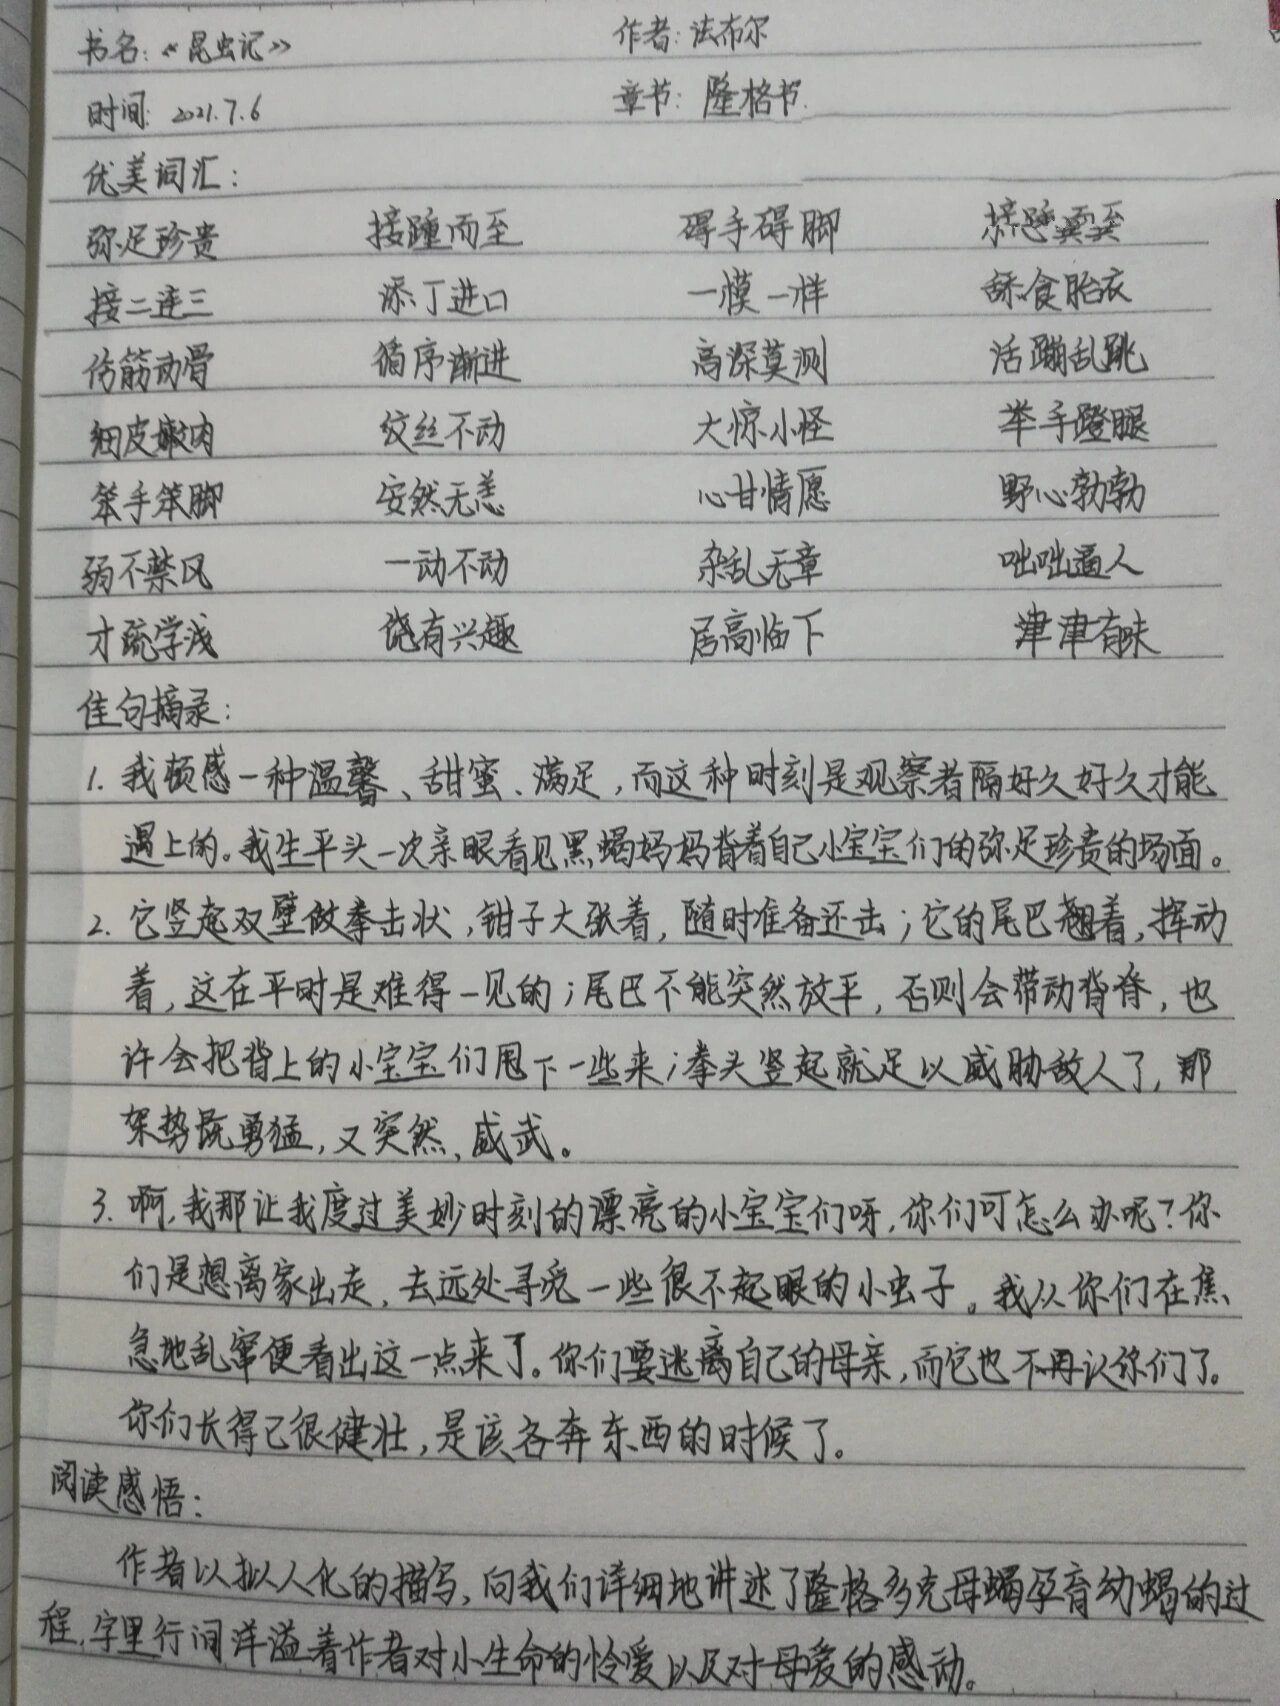 书名:《昆虫记》 作者:法布尔
时间: 2021.7.6 章节: 隆格书
优美词汇:
弥足珍贵 接踵而至 碍手碍脚
接二连三 添丁进口 一模一样 舔食胎衣
伤筋动骨 循序渐进 高深莫测 活蹦乱跳
细皮嫩肉 纹丝不动 大惊小怪 举手蹬腿
笨手笨脚 安然无恙 心甘情愿 野心勃勃
弱不禁风 一动不动 杂乱无章 咄咄逼人
才疏学浅 饶有兴趣 居高临下 津津有味
佳句摘录:
1. 我顿感一种温馨、甜蜜、满足,而这种时刻是观察者隔好久好久才能
遇上的。我生平头一次亲眼看见黑蝎妈妈背着自己小宝宝们的弥足珍贵的场面。
2. 它竖起双壁做拳击状,钳子大张着,随时准备还击;它的尾巴翘着,挥动
着,这在平时是难得一见的;尾巴不能突然放平,否则会带动背脊,也
许会把背上的小宝宝们甩下一些来;拳头竖起就足以威胁敌人了,那
架势既勇猛,又突然、威武。
3. 啊,我那让我度过美妙时刻的漂亮的小宝宝们呀,你们可怎么办呢?你
们是想离家出走,去远处寻觅一些很不起眼的小虫子。我从你们在焦
急地乱窜便看出这一点来了。你们要逃离自己的母亲,而它也不再认你们了。
你们长得已很健壮,是该各奔东西的时候了。
阅读感悟:
作者以拟人化的描写,向我们详细地讲述了隆格多克母蝎孕育幼蝎的过
程,字里行间洋溢着作者对小生命的怜爱以及对母爱的感动。